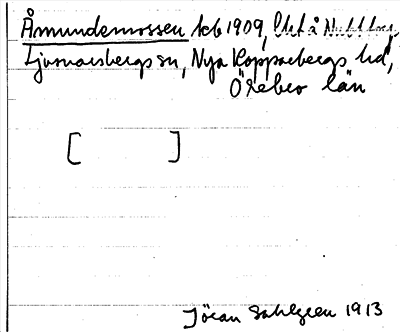 Åmundemossen kb 1909,
Ljusnarsbergs sn, Nya Kopparbergs hd,
Örebro län
[ ]
Jöran Sahlgren 1913